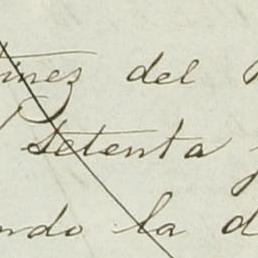 tinez del
Setenta y
ndo la d